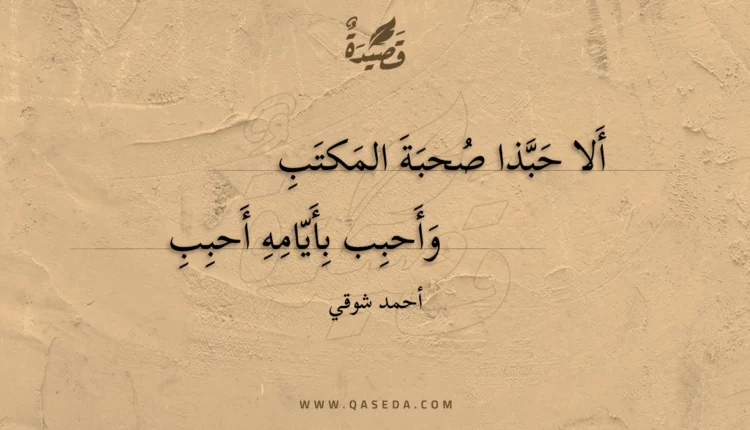 قَصِيدَةٌ
أَلا حَبَّذا صُحبَةَ المَكتَبِ
وَأَحبِب بِأَيّامِهِ أَحبِبِ
أحمد شوقي
WWW.QASEDA.COM